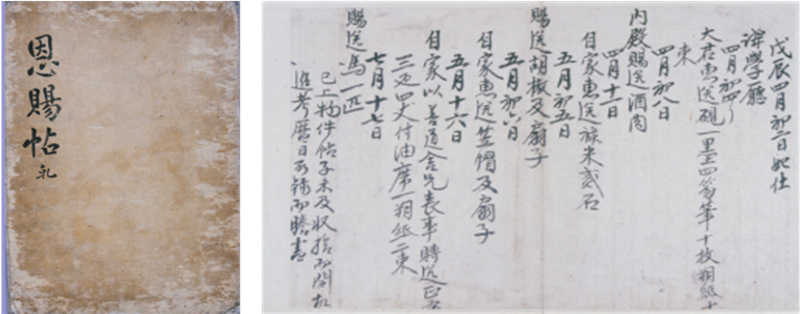 恩賜帖
戊辰四月初二日始仕
講學廳
四月初四日
大君惠送硯一墨四笏筆十枚朔紙十
束
四月初八日
內殿賜送酒肉
四月十一日
自家惠送旅米貳石
五月初五日
賜送胡椒及扇子
五月初六日
自家惠送笠帽及扇子
五月十六日
自家以善道舍兄喪事賻送正
三疋四丈付油席一朔紙二束
七月十七日
賜送馬一匹
已上物件帖子未及收拾而閪故
進考曆日所錄而謄書